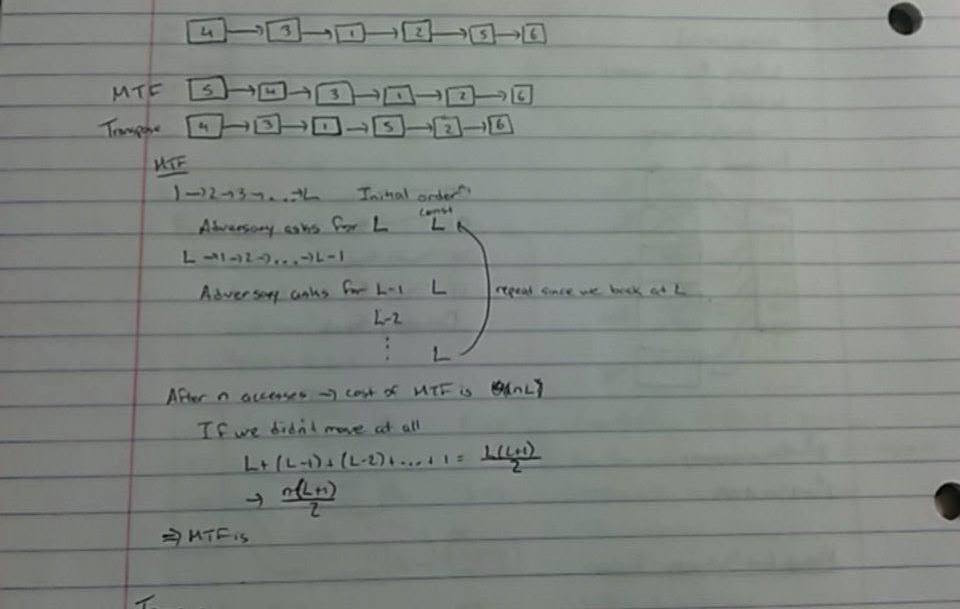 4 → 3 → 1 → 2 → 5 → 6
MTF 5 → 4 → 3 → 1 → 2 → 6
Transpose 4 → 3 → 1 → 5 → 2 → 6
MTF
1→2→3→...→L Initial order
cost
Adversary asks for L L
L→1→2→...→L-1
Adversary asks for L-1 L repeat since we back at L
L-2
⋮ L
After n accesses → cost of MTF is (nL)
If we didn't move at all
L+(L-1)+(L-2)+...+1 = L(L+1)/2
→ n(L+1)/2
⇒ MTF is